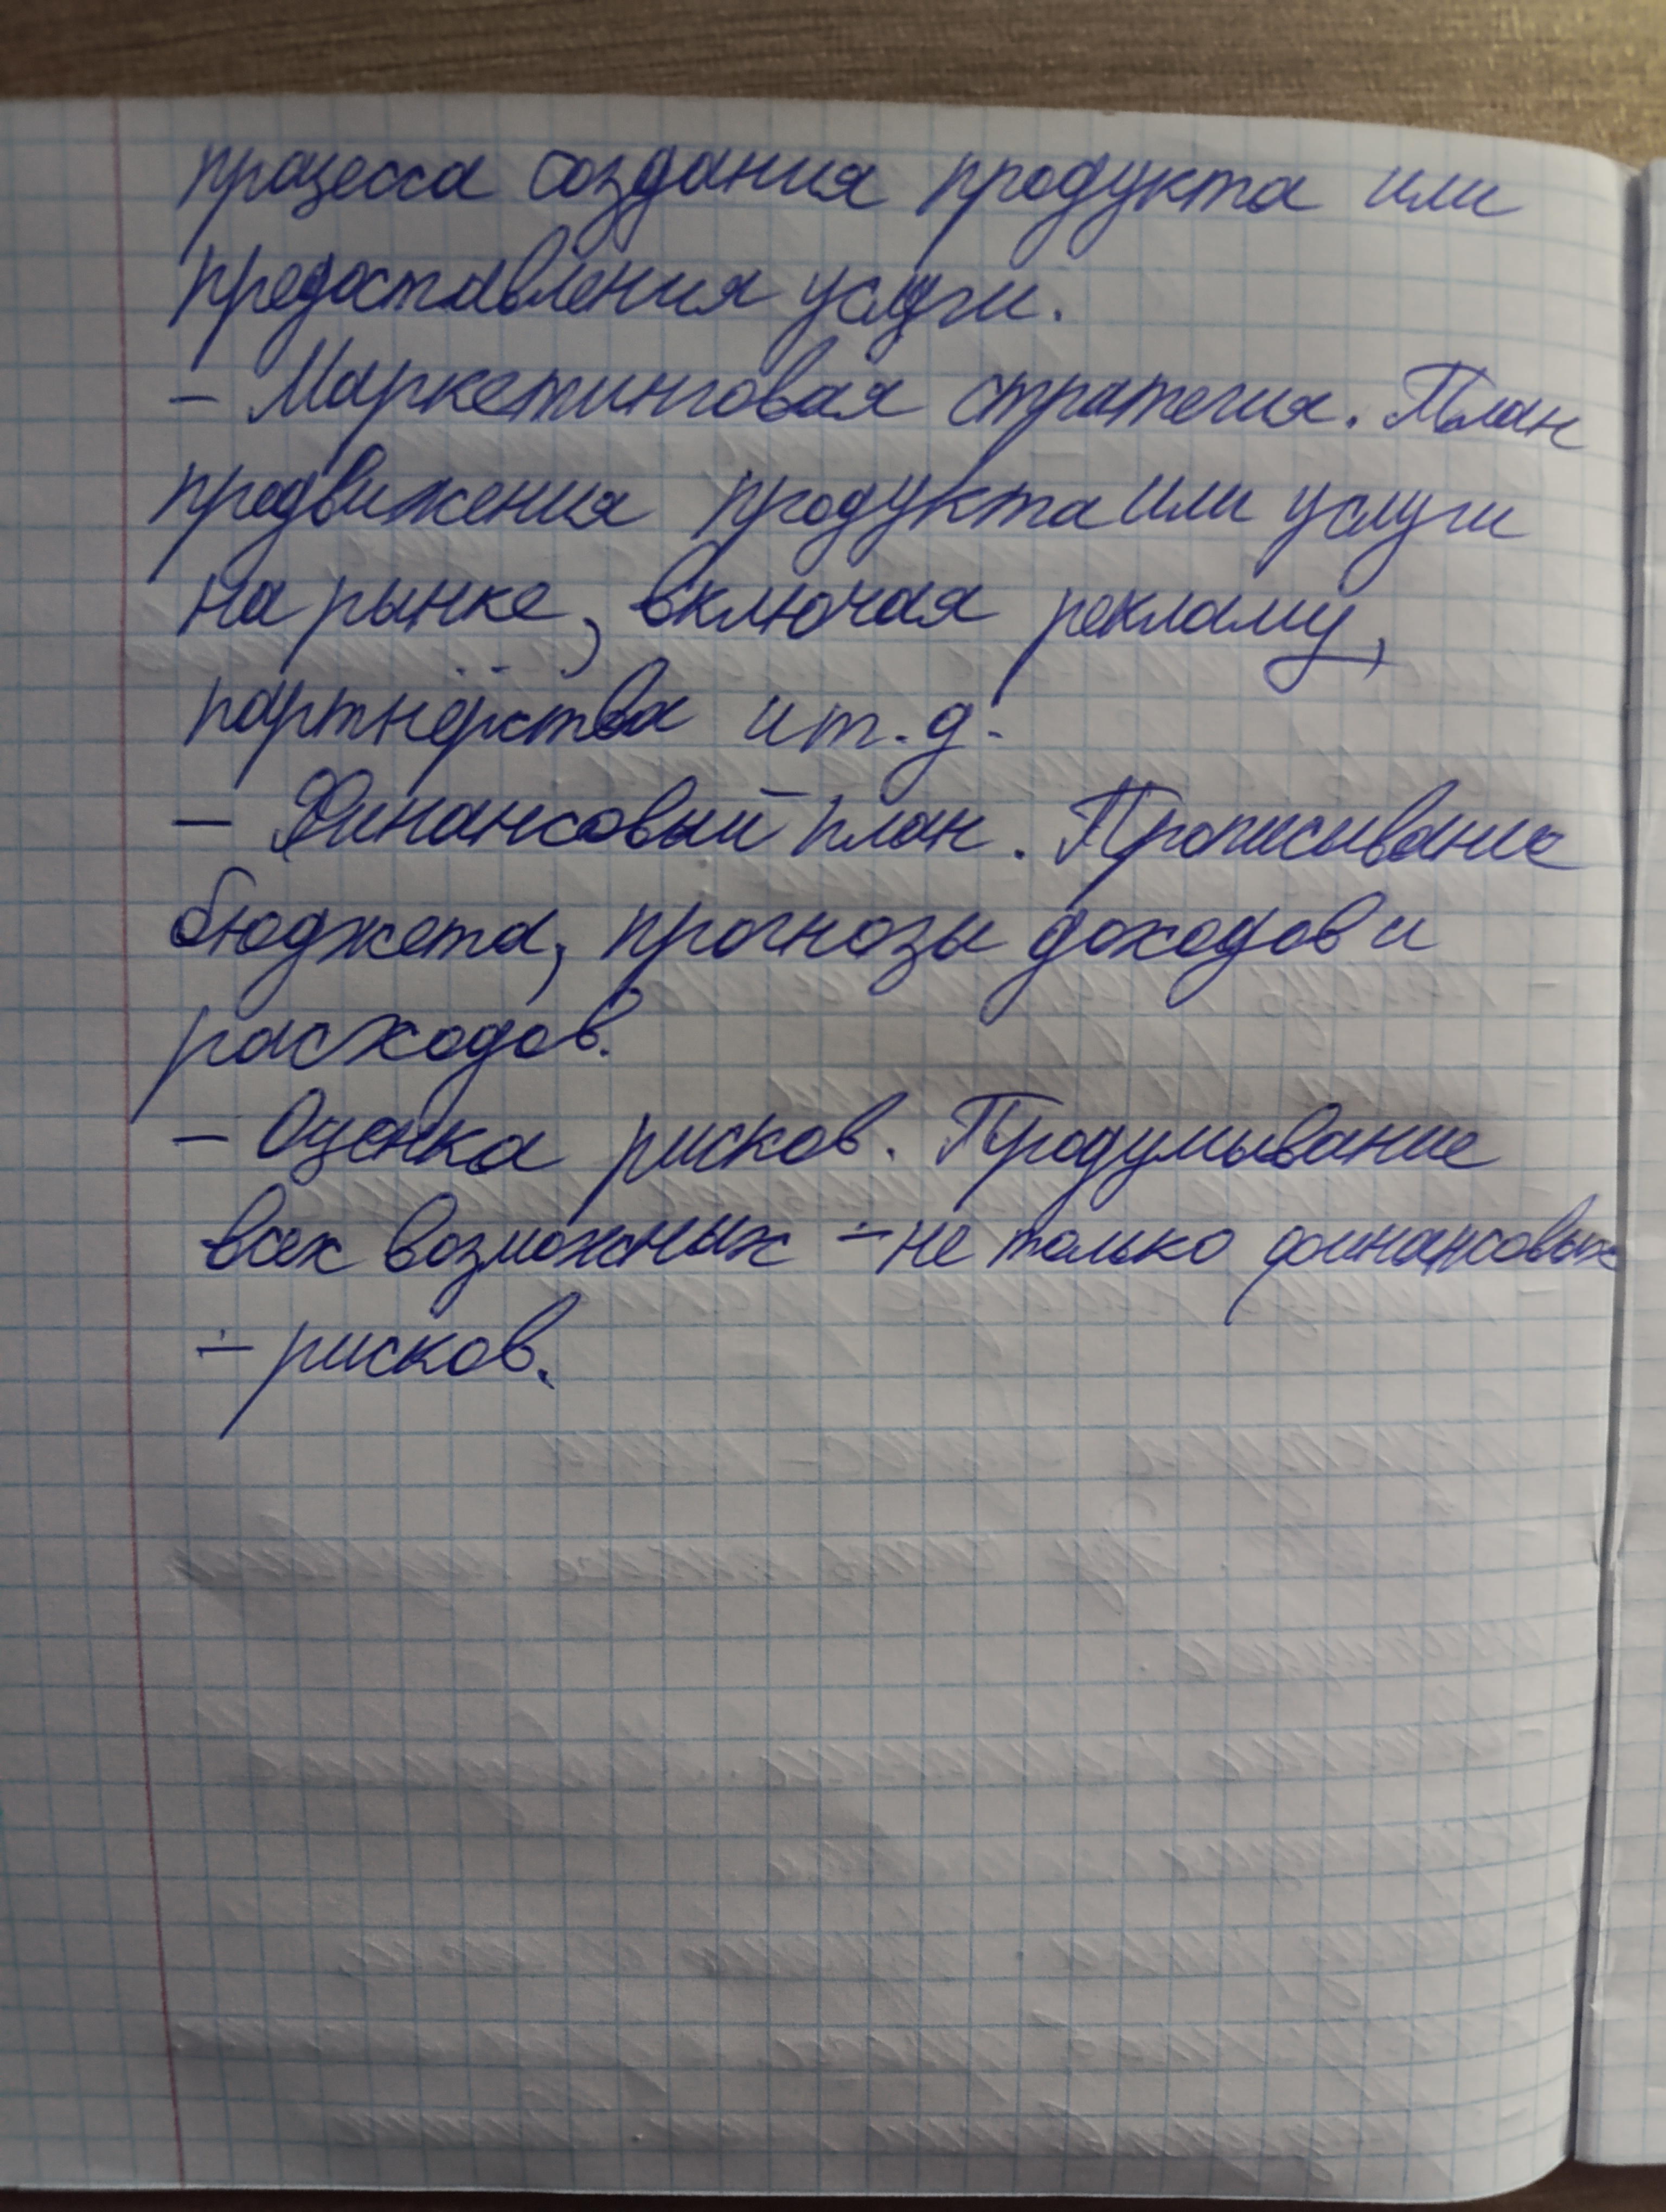 процесса создания продукта или
предоставления услуги.
- Маркетинговая стратегия. План
продвижения продукта или услуги
на рынке, включая рекламу,
партнёрства и т.д.
- Финансовый план. Прописывание
бюджета, прогнозы доходов и
расходов.
- Оценка рисков. Продумывание
всех возможных - не только финансовых
- рисков.